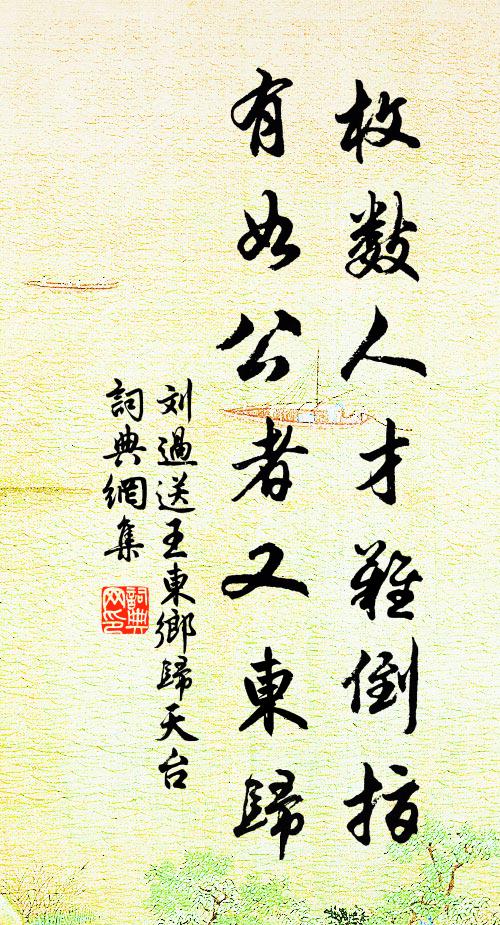 枚數人才難倒指
有如公者又東歸
刘過送王東鄉歸天台
詞典網集
詞典网印